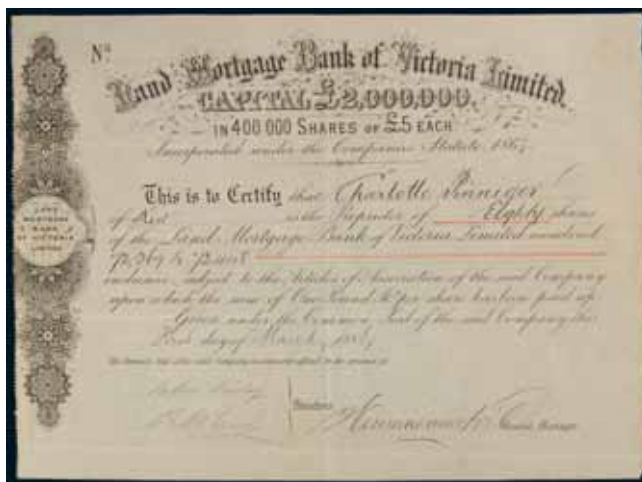 No.
Land Mortgage Bank of Victoria Limited.
CAPITAL £2,000,000.
IN 400 000 SHARES OF £5 EACH
Incorporated under the Companies Statute 1864
This is to Certify that Charlotte Pinniger
of is the Proprietor of Eighty shares
of the Land Mortgage Bank of Victoria Limited numbered
inclusive, subject to the Articles of Association of the said Company
upon which the sum of One Pound per share has been paid up
Given under the Common Seal of the said Company this
First day of March
LAND
MORTGAGE
BANK
OF VICTORIA
LIMITED
Directors
Manager